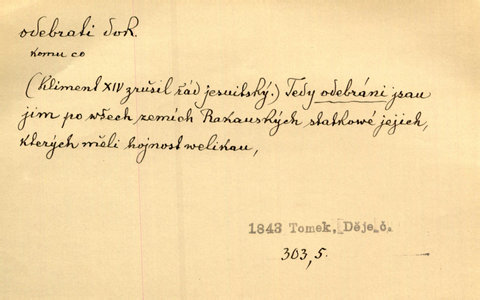 odebrati dok.
komu co
(Kliment XIV zrušil řád jesuitský.) Tedy odebráni jsau
jim po wšech zemích Rakauských statkowé jejich,
kterých měli hojnost welikau,
1843 Tomek, Děje č.
303,5.